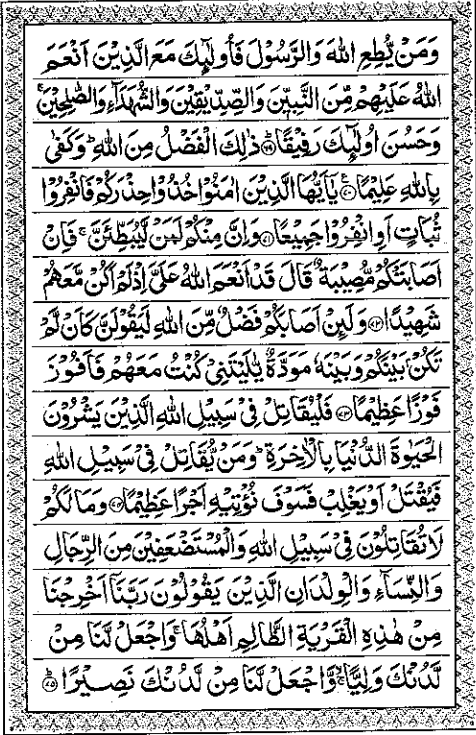 وَمَنْ يُّطِعِ اللّٰهَ وَالرَّسُوْلَ فَاُولٰٓئِكَ مَعَ الَّذِيْنَ اَنْعَمَ
اللّٰهُ عَلَيْهِمْ مِّنَ النَّبِيّٖنَ وَالصِّدِّيْقِيْنَ وَالشُّهَدَآءِ وَالصّٰلِحِيْنَ ۚ
وَحَسُنَ اُولٰٓئِكَ رَفِيْقًا ۝۶۹ ذٰلِكَ الْفَضْلُ مِنَ اللّٰهِ ؕ وَكَفٰى
بِاللّٰهِ عَلِيْمًا ۝۷۰ يٰٓاَيُّهَا الَّذِيْنَ اٰمَنُوْا خُذُوْا حِذْرَكُمْ فَانْفِرُوْا
ثُبَاتٍ اَوِ انْفِرُوْا جَمِيْعًا ۝۷۱ وَاِنَّ مِنْكُمْ لَمَنْ لَّيُبَطِّئَنَّ ۚ فَاِنْ
اَصَابَتْكُمْ مُّصِيْبَةٌ قَالَ قَدْ اَنْعَمَ اللّٰهُ عَلَيَّ اِذْ لَمْ اَكُنْ مَّعَهُمْ
شَهِيْدًا ۝۷۲ وَلَئِنْ اَصَابَكُمْ فَضْلٌ مِّنَ اللّٰهِ لَيَقُوْلَنَّ كَاَنْ لَّمْ
تَكُنْۢ بَيْنَكُمْ وَبَيْنَهٗ مَوَدَّةٌ يّٰلَيْتَنِيْ كُنْتُ مَعَهُمْ فَاَفُوْزَ
فَوْزًا عَظِيْمًا ۝۷۳ فَلْيُقَاتِلْ فِيْ سَبِيْلِ اللّٰهِ الَّذِيْنَ يَشْرُوْنَ
الْحَيٰوةَ الدُّنْيَا بِالْاٰخِرَةِ ؕ وَمَنْ يُّقَاتِلْ فِيْ سَبِيْلِ اللّٰهِ
فَيُقْتَلْ اَوْ يَغْلِبْ فَسَوْفَ نُؤْتِيْهِ اَجْرًا عَظِيْمًا ۝۷۴ وَمَا لَكُمْ
لَا تُقَاتِلُوْنَ فِيْ سَبِيْلِ اللّٰهِ وَالْمُسْتَضْعَفِيْنَ مِنَ الرِّجَالِ
وَالنِّسَآءِ وَالْوِلْدَانِ الَّذِيْنَ يَقُوْلُوْنَ رَبَّنَآ اَخْرِجْنَا
مِنْ هٰذِهِ الْقَرْيَةِ الظَّالِمِ اَهْلُهَا ۚ وَاجْعَلْ لَّنَا مِنْ
لَّدُنْكَ وَلِيًّا ۚۙ وَّاجْعَلْ لَّنَا مِنْ لَّدُنْكَ نَصِيْرًا ۝۷۵ؕ